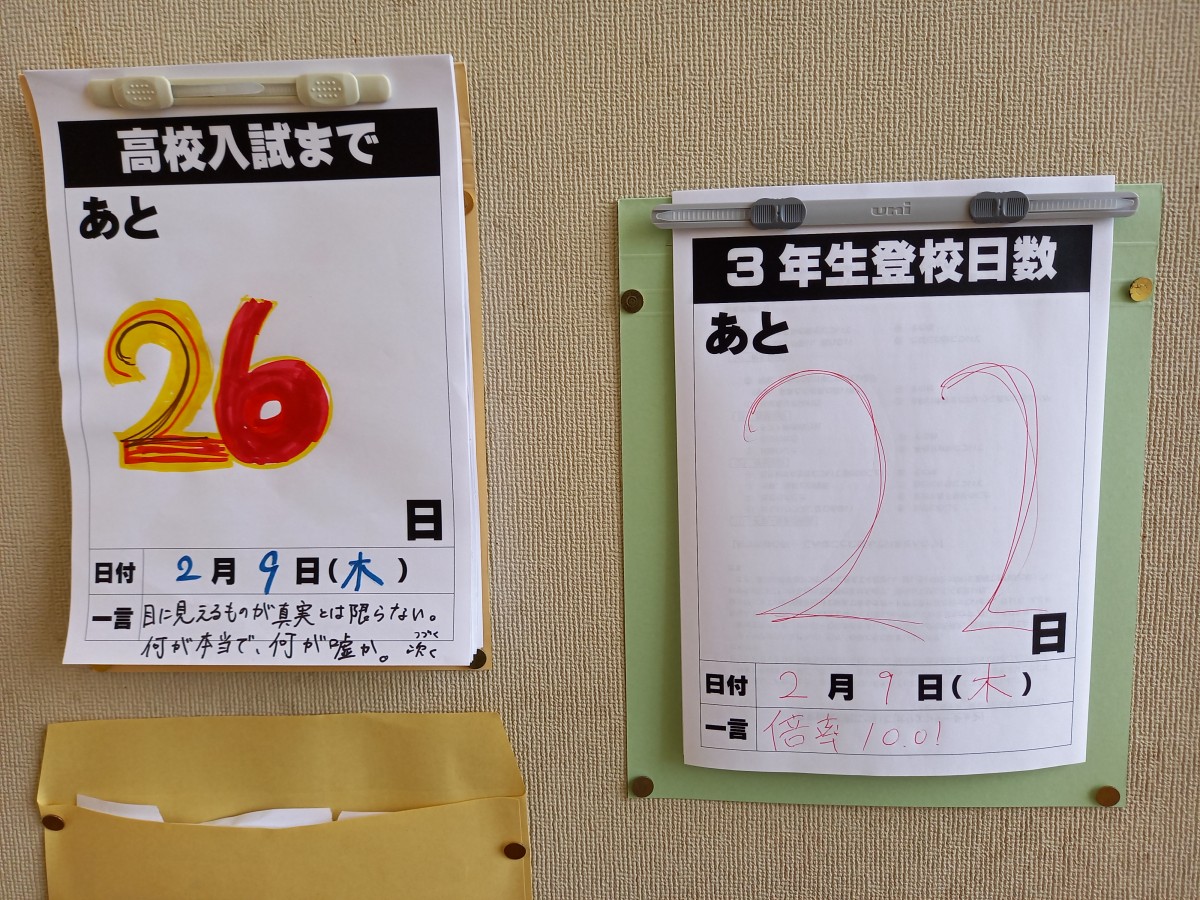 高校入試まで
あと
26
日
日付 2月9日(木)
一言 目に見えるものが真実とは限らない。
何が本当で、何が嘘か。
つづく
次く
uni
3年生登校日数
あと
22
日
日付 2月9日(木)
一言 倍率10.0!